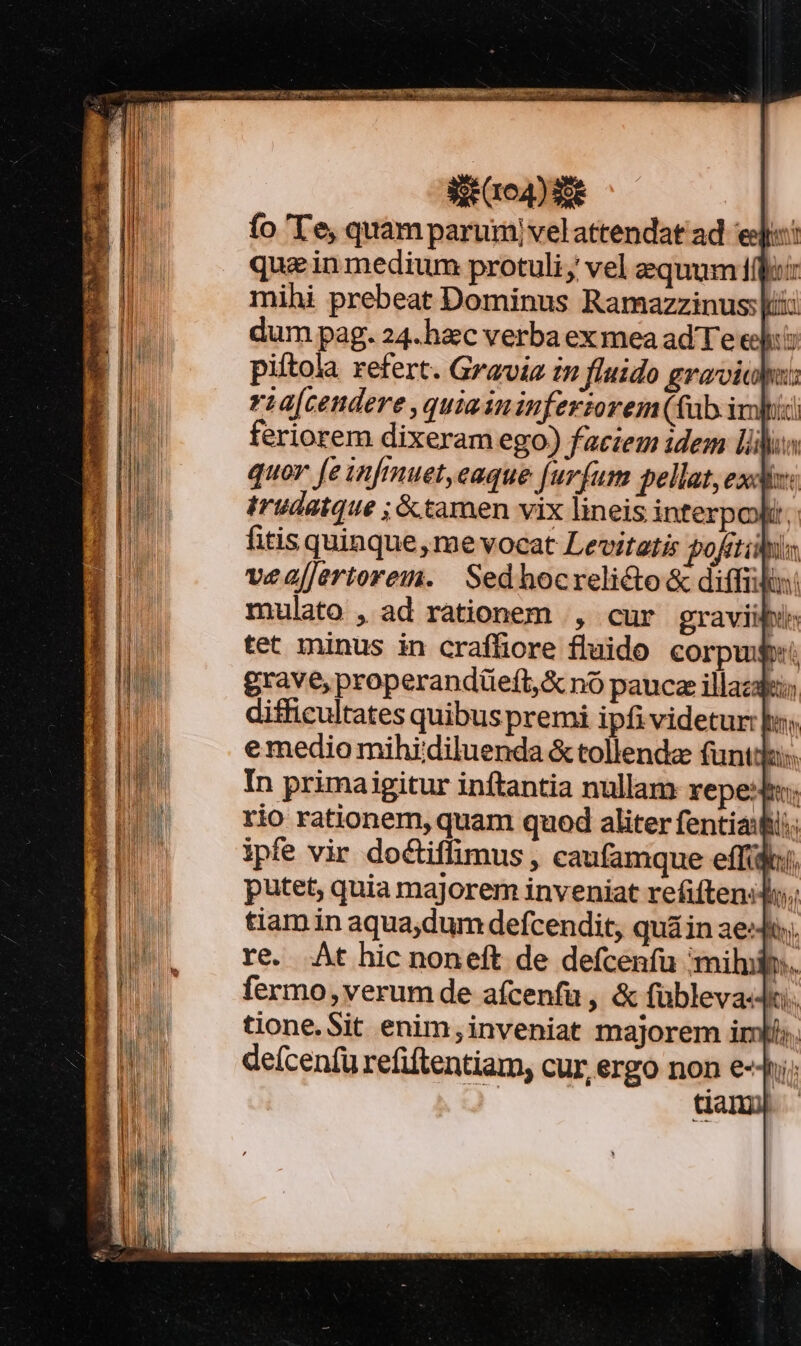 (104)
ſo Te, quam parum vel attendat ad ea
quæ in medium protuli, vel æquum ſ
mihi prebeat Dominus Ramazzinus:
dum pag. 24. hæc verba ex mea ad Te e-
piſtola refert. Gravia in fluido gravio-
ri aſcendere, quia in inferiorem (ſub in-
feriorem dixeram ego) faciem idem li-
quor ſe inſinuet, eaque ſurſum pellat, ex-
trudatque ; & tamen vix lineis interpo-
ſitis quinque, me vocat Levitatis poſiti-
væ aſſertorem. Sed hoc relicto & diſſi-
mulato , ad rationem , cur gravi-
tet minus in craſſiore fluido corpus
grave, properandū eſt, & nō paucæ illæ
difficultates quibus premi ipſi videtur
e medio mihi diluenda & tollendæ ſunt.
In prima igitur inſtantia nullam repe-
rio rationem, quam quod aliter ſentiat
ipſe vir doctiſſimus , cauſamque eſſe
putet, quia majorem inveniat reſiſten-
tiam in aqua, dum deſcendit, quā in ae-
re. At hic non eſt de deſcenſu mihi
ſermo, verum de aſcenſu , & ſubleva-
tione. Sit enim, inveniat majorem in
deſcenſu reſiſtentiam, cur ergo non e-
tiam